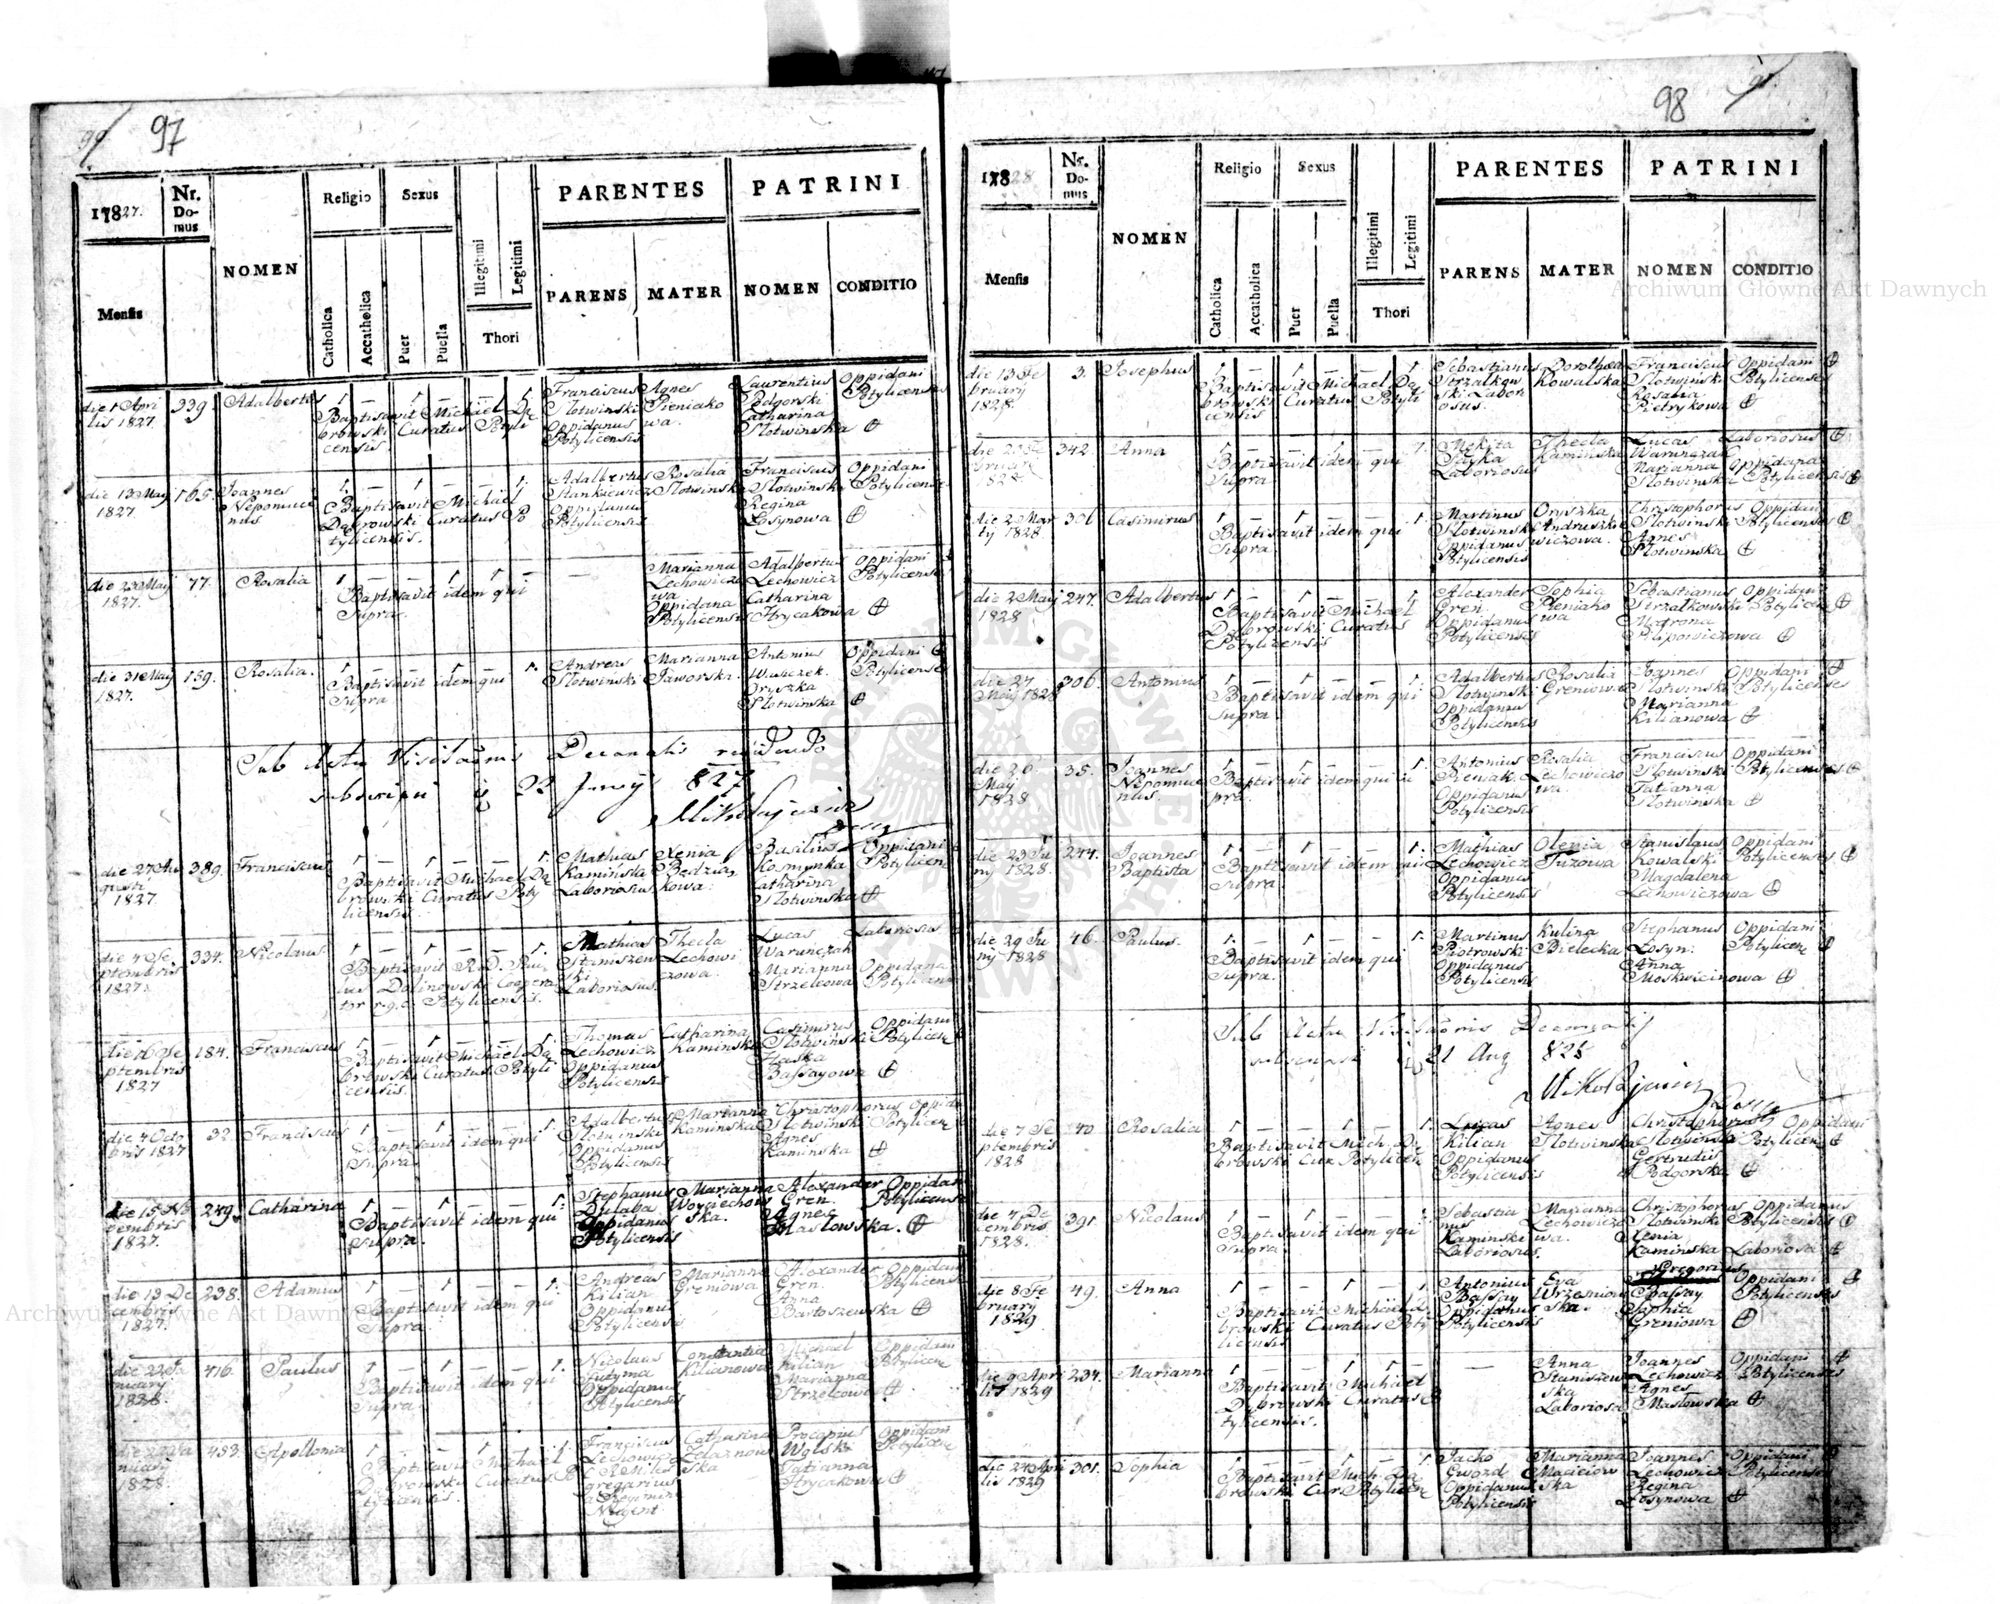 97
1827.
Nr. Domus
NOMEN
Religio
Sexus
PARENTES
PATRINI
Mensis
Catholica
Accatholica
Puer
Puella
Illegitimi
Legitimi
Thori
PARENS
MATER
NOMEN
CONDITIO
die 1 Apri
lis 1827
339.
Adalbertus
Baptisavit Michaël Dą
browski Curatus Potyli
censis.
Franciscus
Slotwinski
Oppidanus
Potylicensis
Agnes
Pieniako
wa.
Laurentius
Podgorski
Catharina
Slotwinska
Oppidani
Potylicenses
die 13 Maÿ
1827.
165.
Joannes
Nepomuce
nus
Baptisavit Michaël
Dąbrowski Curatus Po
tylicensis.
Adalbertus
Stankiewicz
Oppidanus
Potylicensis
Rosalia
Slotwinska
Franciscus
Slotwinski
Regina
Losynowa
Oppidani
Potylicenses
die 23 Maÿ
1827.
77.
Rosalia
Baptisavit idem qui
Supra.
Marianna
Lechowiczo
wa
Oppidana
Potylicensis
Adalbertus
Lechowicz
Catharina
Hrycakowa
Oppidani
Potylicenses
die 31 Maÿ
1827.
159.
Rosalia.
Baptisavit idem qui
Supra
Andreas
Slotwinski
Marianna
Jaworska.
Antonius
Oryszka
Slotwinska
Oppidani
Potylicenses
Sub Actu Visitaõnis Decanalis
22 Junÿ 827
Mikołajewicz
die 27 Au
gusti
1827.
389.
Franciscus
Baptisavit Michael Dą
browski Curatus Poty
licensis.
Mathias
Kaminski
Laboriosus
Xenia
Będzia
kowa.
Basilius
Kosmynka
Catharina
Slotwinska
Oppidani
Potylicen
die 4 Se
ptembris
1827.
334.
Nicolaus
Baptisavit R.D. Pau
lus Dolinowski Coopera
tor r.g.c. Potylicensis.
Mathias
Staniszew
ski
Laboriosus.
Thecla
Lechowi
czowa.
Lucas
Warunczak
Marianna
Strzelcowa
Laboriosus
Oppidana
Potylicen
die 16 Se
ptembris
1827
184.
Franciscus
Baptisavit Michaël Dą
browski Curatus Potyli
censis.
Thomas
Lechowicz
Oppidanus
Potylicensis
Catharina
Kaminska
Casimirus
Slotwinski
Haska
Baſsayowa
Oppidani
Potylicen
die 4 Octo
bris 1827
32.
Franciscus
Baptisavit idem qui
Supra.
Adalbertus
Slotwinski
Oppidanus
Potylicensis
Marianna
Kaminska
Christophorus
Slotwinski
Agnes
Kaminska
Oppida
Potylicen
die 15 No
vembris
1827.
249.
Catharina
Baptisavit idem qui
Supra.
Stephanus
Dulaba
Oppidanus
Potylicensis
Marianna
Woyciechow
ska.
Alexander
Gren.
Agnes
Maslowska.
Oppidan
Potylicense
die 13 De
cembris
1827.
238.
Adamus
Baptisavit idem qui
Supra.
Andreas
Kilian
Oppidanus
Potylicensis
Marianna
Greniowa
Alexander
Gren.
Anna
Bartoszewska
Oppidan
Potylicens
die 22 Ja
nuary
1828.
416.
Paulus
Baptisavit idem qui
Supra.
Nicolaus
Futyma
Oppidanus
Potylicensis
Constantia
Kilianowa
Michael
Kilian
Marianna
Strzelcowa
Oppidani
Potylicen
die 27 Ja
nuary
1828.
453.
Apollonia
Baptisavit Michael
Dąbrowski Curatus Po
tylicensis.
Franciscus
Lechowicz
gregarius
Nugent
Catharina
Zelaznow
ska
Procopius
Wolski
Tatianna
Hrycakowa
Oppidani
Potylicen
98
1828
Nr. Domus
NOMEN
Religio
Sexus
PARENTES
PATRINI
Mensis
Catholica
Accatholica
Puer
Puella
Illegitimi
Legitimi
Thori
PARENS
MATER
NOMEN
CONDITIO
die 13 Fe
bruarÿ
1828.
3.
Josephus
Baptisavit Michael Dą
browski Curatus Potyli
censis
Sebastianus
Strzalkow
ski Labori
osus.
Dorothea
Kowalska
Franciscus
Slotwinski
Rosalia
Pietrykowa
Oppidani
Potylicenses
342.
Anna
Baptisavit idem qui
Supra.
Mekita
Laboriosus
Thecla
Kaminska
Lucas
Warunczak
Marianna
Slotwinska
Laboriosus
Oppidana
Potylicensis
die 2 Mar
ty 1828
306
Casimirus
Baptisavit idem qui
Supra.
Martinus
Slotwinski
Oppidanus
Potylicensis
Oryszka
Andruszkie
wiczowa.
Christophorus
Slotwinski
Agnes
Slotwinska
Oppidani
Potylicenses
die 2 Maÿ
1828
247.
Adalbertus
Baptisavit Michael
Dąbrowski Curatus
Potylicensis
Alexander
Gren.
Oppidanus
Potylicensis
Sophia
Pieniako
wa
Sebastianus
Strzalkowski
Matrona
Pilipowiczowa
Oppidani
Potylicen
die 27
Maÿ 1828
306.
Antonius
Baptisavit idem qui
Supra.
Adalbertus
Slotwinski
Oppidanus
Potylicensis
Rosalia
Greniowa
Joannes
Slotwinski
Marianna
Kilianowa
Oppidani
Potylicenses
die 20.
Maÿ
1828
35.
Joannes
Nepomuce
nus.
Baptisavit idem qui su
pra.
Antonius
Pieniak.
Oppidanus
Potylicensis
Rosalia
Lechowiczo
wa.
Franciscus
Slotwinski
Tatianna
Slotwinska
Oppidani
Potylicenses
die 23 Ju
nÿ 1828.
244.
Joannes
Baptista
Baptisavit idem qui
Supra.
Mathias
Lechowicz
Oppidanus
Potylicensis
Olenia
Tuzowa
Stanislaus
Kowalski
Magdalena
Lechowiczowa
Oppidani
Potylicenses
die 29 Ju
nÿ 1828
46.
Paulus.
Baptisavit idem qui
Supra.
Martinus
Piotrowski
Oppidanus
Potylicensis
Kulina
Bielecka
Stephanus
Losyn.
Anna
Moskwicinowa
Oppidani
Potylicen
Sub Actu Visitaõnis Decanalis
21 Aug 828
Mikołajewicz
die 7 Se
ptembris
1828
40.
Rosalia
Baptisavit Mich. Dą
browski Cur Potylicen
Lucas
Kilian
Oppidanus
Potylicensis
Agnes
Slotwinska
Christophorus
Slotwinski
Gertrudis
Podgorska
Oppidani
Potylicen
die 4 De
cembris
1828.
391.
Nicolaus
Baptisavit idem qui
Supra.
Sebastia
nus
Kaminski
Laboriosus.
Marianna
Lechowiczo
wa.
Christophorus
Slotwinski
Xenia
Kaminska
Oppidanus
Potylicensis
Laboriosa
die 8 Fe
bruary
1829
49.
Anna
Baptisavit Michaël Dą
browski Curatus Poty
licensis
Antonius
Baſsay
Oppidanus
Potylicensis
Eva
Wrzesniow
ska.
Gregorius
Baſsay
Sophia
Greniowa
Oppidani
Potylicenses
die 9 Apri
lis 1829
234.
Marianna
Baptisavit Michael
Dąbrowski Curatus Po
tylicensis.
Anna
Staniszew
ska
Laboriosa
Joannes
Lechowicz
Agnes
Maslowska
Oppidani
Potylicenses
die 24 Apri
lis 1829
301.
Sophia
Baptisavit Mich. Dą
browski Cur Potylicen
Jacko
Gwozd
Oppidanus
Potylicensis
Marianna
Maciciow
ska
Joannes
Lechowicz
Regina
Losynowa
Oppidani
Potylicenses
Archiwum Główne Akt Dawnych
Archiwum Główne Akt Dawnych